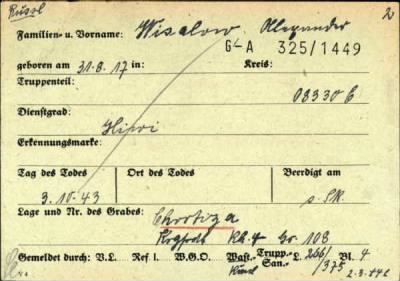 Russl 2
Familien- u. Vorname: Wisalow, Alexander
G-A 325/1449
geboren am 31.8.17 in: Kreis:
Truppenteil: 08330 E
Dienstgrad: Hiwi
Erkennungsmarke:
Tag des Todes Ort des Todes Beerdigt am
3.10.43 s. Sk.
Lage und Nr. des Grabes: Chortoza
Kh. 4 Gr. 108
Gemeldet durch: V.L. Ref I. W.G.O. Wast.- Trupp.- San.- L. 266/375 Bl. 4